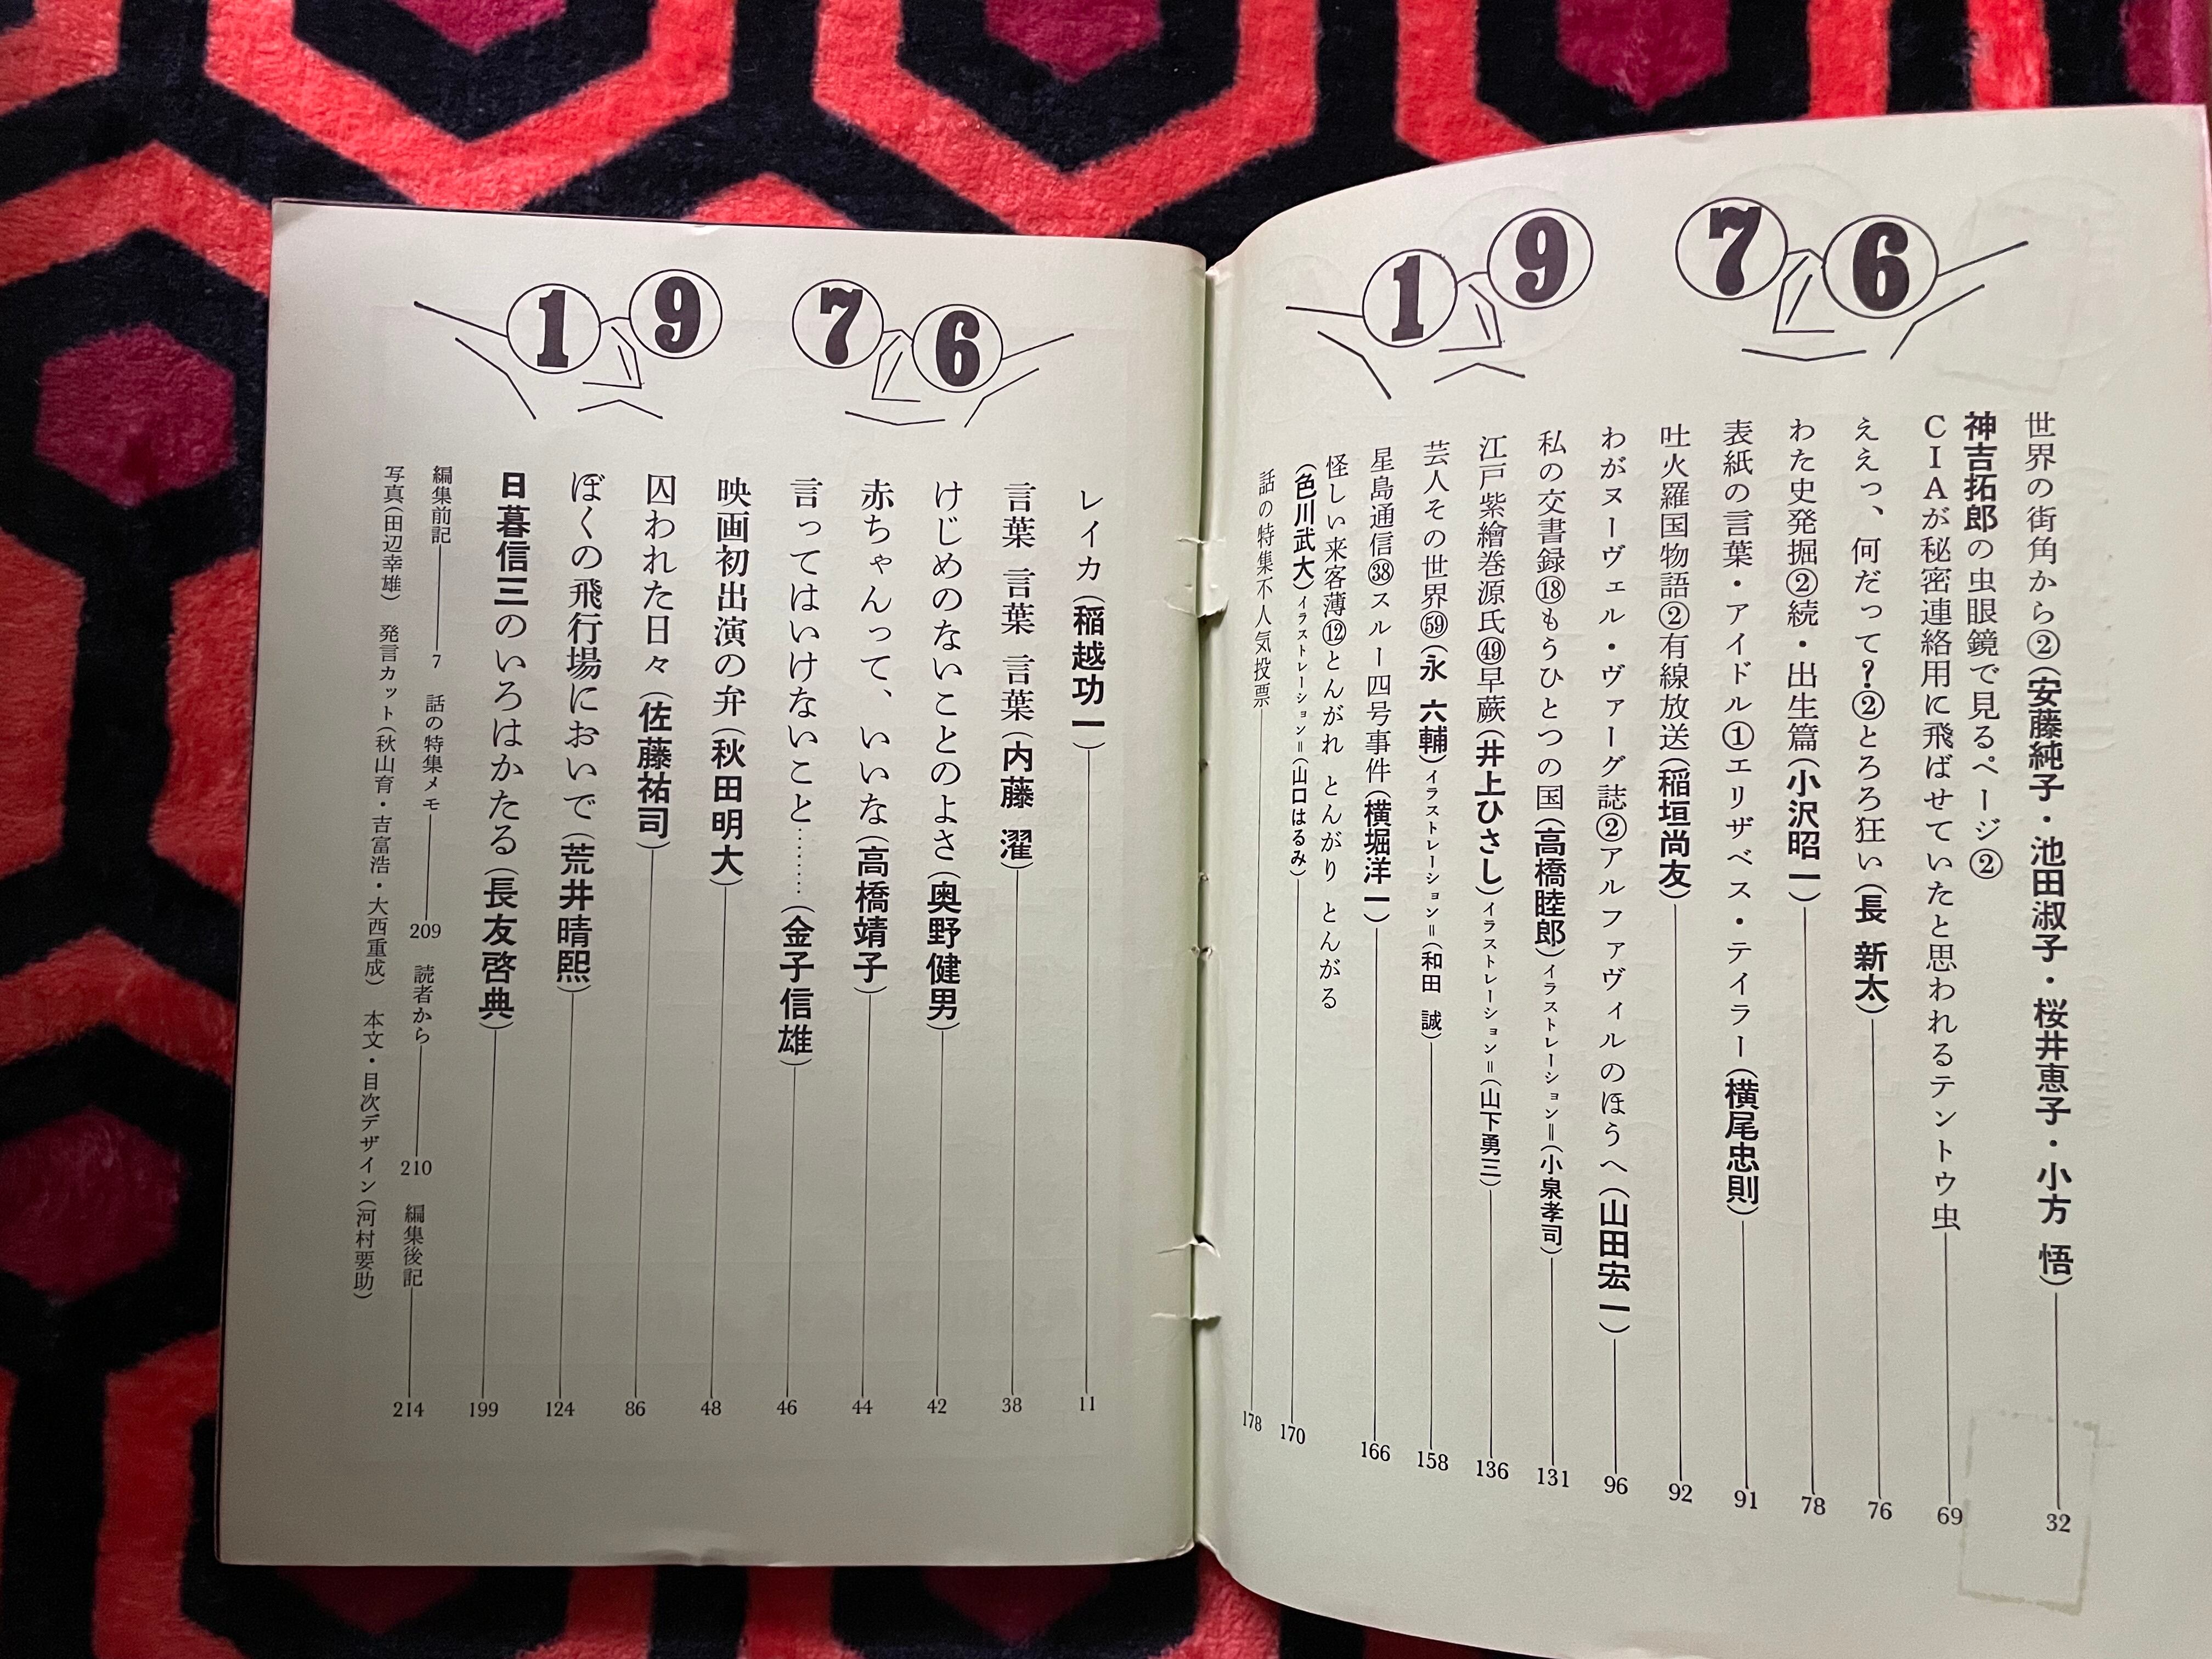 1976
世界の街角から②(安藤純子・池田淑子・桜井恵子・小方 悟) 32
神吉拓郎の虫眼鏡で見るページ②
CIAが秘密連絡用に飛ばせていたと思われるテントウ虫 69
ええっ、何だって?②とろろ狂い(長 新太) 76
わた史発掘②続・出生篇(小沢昭一) 78
表紙の言葉・アイドル①エリザベス・テイラー(横尾忠則) 91
吐火羅国物語②有線放送(稲垣尚友) 92
わがヌーヴェル・ヴァーグ誌②アルファヴィルのほうへ(山田宏一) 96
私の交書録⑱もうひとつの国(高橋睦郎)イラストレーション=(小泉孝司) 131
江戸紫繪巻源氏㊾早蕨(井上ひさし)イラストレーション=(山下勇三) 136
芸人その世界�59(永 六輔)イラストレーション=(和田 誠) 158
星島通信㊳スルー四号事件(横堀洋一) 166
怪しい来客薄⑫とんがれ とんがり とんがる
(色川武大)イラストレーション=(山口はるみ) 170
話の特集不人気投票 178
1976
レイカ(稲越功一) 11
言葉 言葉 言葉(内藤 濯) 38
けじめのないことのよさ(奥野健男) 42
赤ちゃんって、いいな(高橋靖子) 44
言ってはいけないこと………(金子信雄) 46
映画初出演の弁(秋田明大) 48
囚われた日々(佐藤祐司) 86
ぼくの飛行場においで(荒井晴煕) 124
日暮信三のいろはかたる(長友啓典) 199
編集前記 7 話の特集メモ 209 読者から 210 編集後記 214
写真(田辺幸雄) 発言カット(秋山育・吉富浩・大西重成) 本文・目次デザイン(河村要助)